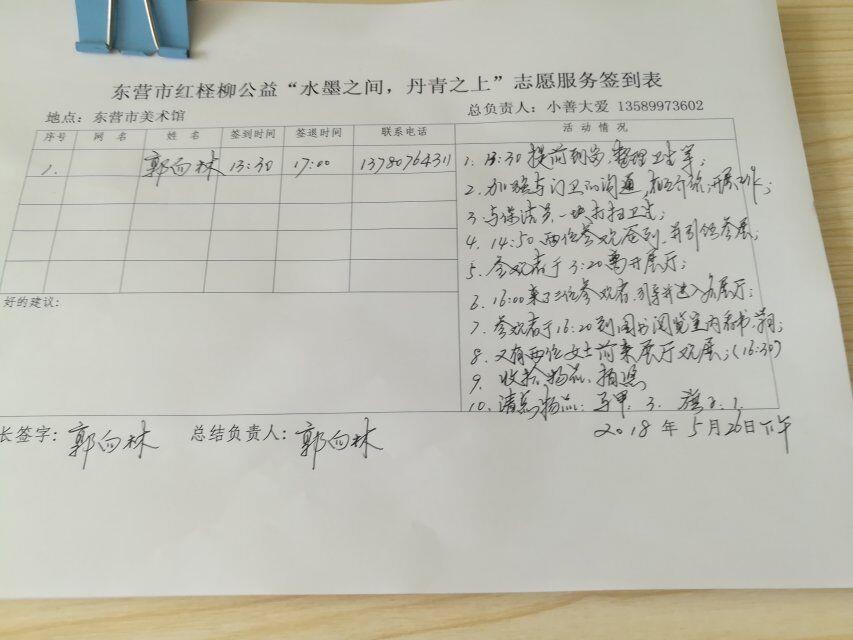 东营市红柽柳公益“水墨之间，丹青之上”志愿服务签到表
地点：东营市美术馆 总负责人：小善大爱 13589973602
序号 网 名 姓 名 签到时间 签退时间 联系电话 活 动 情 况
1. 郭向林 13:30 17:00
1. 13:30提前到岗，整理卫生等；
2. 加强与门卫的沟通，相互介绍，开展工作；
3. 与保洁员一块打扫卫生；
4. 14:50 两位参观者到，并引领参展；
5. 参观者于3:20离开展厅；
6. 16:00来了三位参观者，引导并进入展厅；
7. 参观者于16:20到图书阅览室内看书
8. 又有两位女士前来展厅观展；(16:30)
9. 收拾物品、拍照
10. 清点物品：马甲：3. 旗子：1.
好的建议：
长签字：郭向林 总结负责人：郭向林 2018年5月26日下午